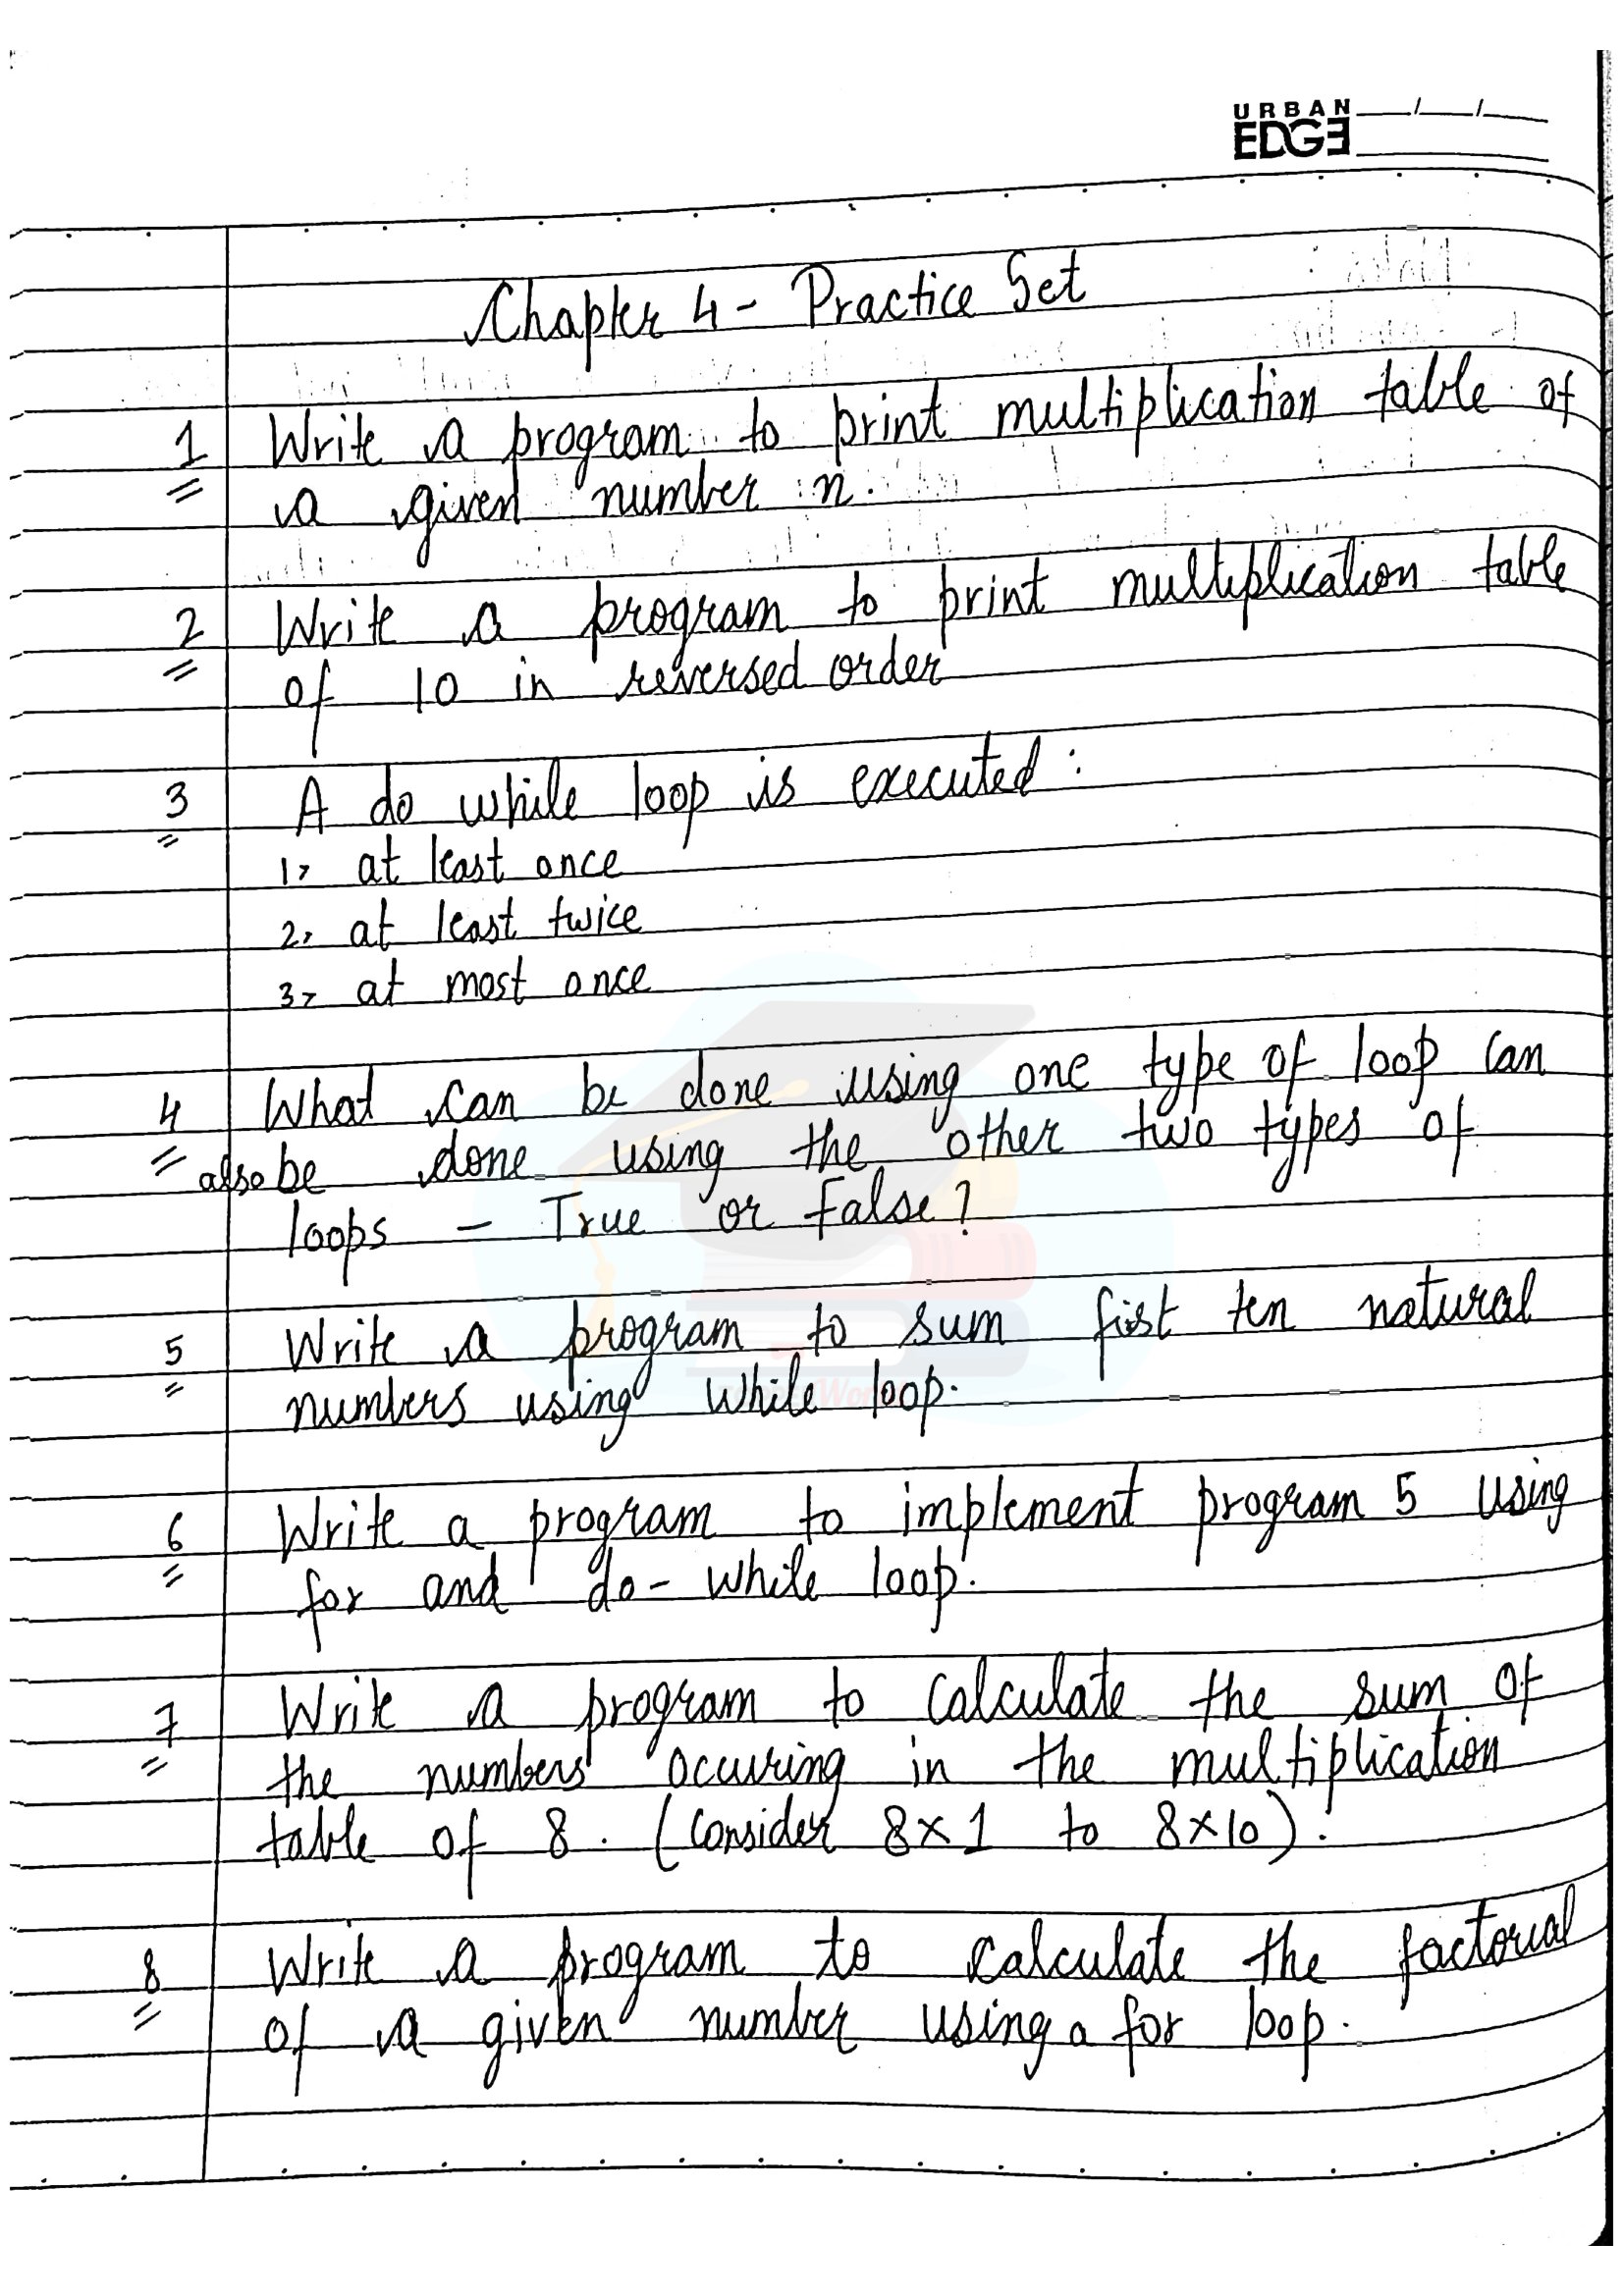 URBAN
EDGE
Chapter 4 - Practice Set
1 Write a program to print multiplication table of
a given number n.
2 Write a program to print multiplication table
of 10 in reversed order
3 A do while loop is executed:
1, at least once
2, at least twice
3, at most once
4 What can be done using one type of loop can
also be done using the other two types of
loops - True or False?
5 Write a program to sum fist ten natural
numbers using while loop.
6 Write a program to implement program 5 using
for and do-while loop.
7 Write a program to calculate the sum of
the numbers occuring in the multiplication
table of 8. (Consider 8×1 to 8×10).
8 Write a program to calculate the factorial
of a given number using a for loop.